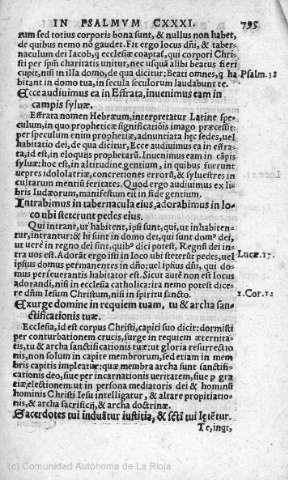 IN PSALMVM CXXXI. 795
eum sed totius corporis bona sunt, & nullus non habet,
de quibus nemo nõ gaudet. Fit ergo locus dñi, & taber-
naculum dei Iacob, q ecclesiæ coaptas, qui corpori Chri-
sti per spm̃ charitatis unitur, nec usquã alibi beatus fieri
cupit, nisi in illa domo, de qua dicitur: Beati omnes, q ha
bitant in domo tua, in secula seculorum laudabunt te.
Psalm.
Ecce audiuimus ea in Effrata, inuenimus eam in
campis syluæ.
Effrata nomen Hebræum, interpretatur Latine spe-
culum, in quo propheticæ significatiõis imago præcessit:
per speculum enim prophetiæ, adnuntiata hæc sedes, uel
habitatio dei, de qua dicitur, Ecce audiuimus eam in effra-
ta, id est, in eloquijs prophetarũ. Inuenimus eam in cãpis
syluæ: hoc est, in altitudine gentium, in quibus fuerunt
uepres idololatriæ, concretiones errorũ, & syluestres in
cultarum mentiũ feritates. Quod ergo audiuimus ex li-
bris Iudæorum, manifestum est in fide gentium.
Intrabimus in tabernacula eius, adorabimus in lo-
co ubi steterunt pedes eius.
Qui intrant, ut habitent, ipsi sunt, qui, ut inhabiten-
tur, intrantur: & hi sunt in domo dei, qui sunt dom⁹ dei,
ut uere in regno dei sint, quib⁹ dici potest, Regnũ dei in-
tra uos est. Adorãt ergo isti in loco ubi steterũt pedes, uel
ipsius domus permanentes in dño: uel ipsius dñi, qui do-
mus perseuerantis habitator est. Sicut autẽ non est locus
adorandi, nisi in ecclesia catholica: ita nemo potest dice
re dñm Iesum Christum, nisi in spiritu sancto.
Lucæ. 17.
1. Cor. 12
Exurge domine in requiem tuam, tu & archa san-
ctificationis tuæ.
Ecclesia, id est corpus Christi, capiti suo dicit: dormisti
per conturbationem crucis, surge in requiem æternita-
tis, tu & archa sanctificationis tuæ: ut gloria resurrectio
nis, non solum in capite membrorum, sed etiam in mem-
bris capitis impleatur: quæ membra archa sunt sanctifica-
tionis deo, siue per incarnationis ueritatem, siue p gra
tiæ electionem, ut in persona mediatoris dei & hominũ
hominis Christi Iesu intelligatur, & altare propitiatio-
nis, & archa sacrificij, & archa doctrinæ.
Sacerdotes tui induãtur iustitia, & sc̃ti tui lętẽtur.
Te, ingt,
(c) Comunidad Autónoma de La Rioja